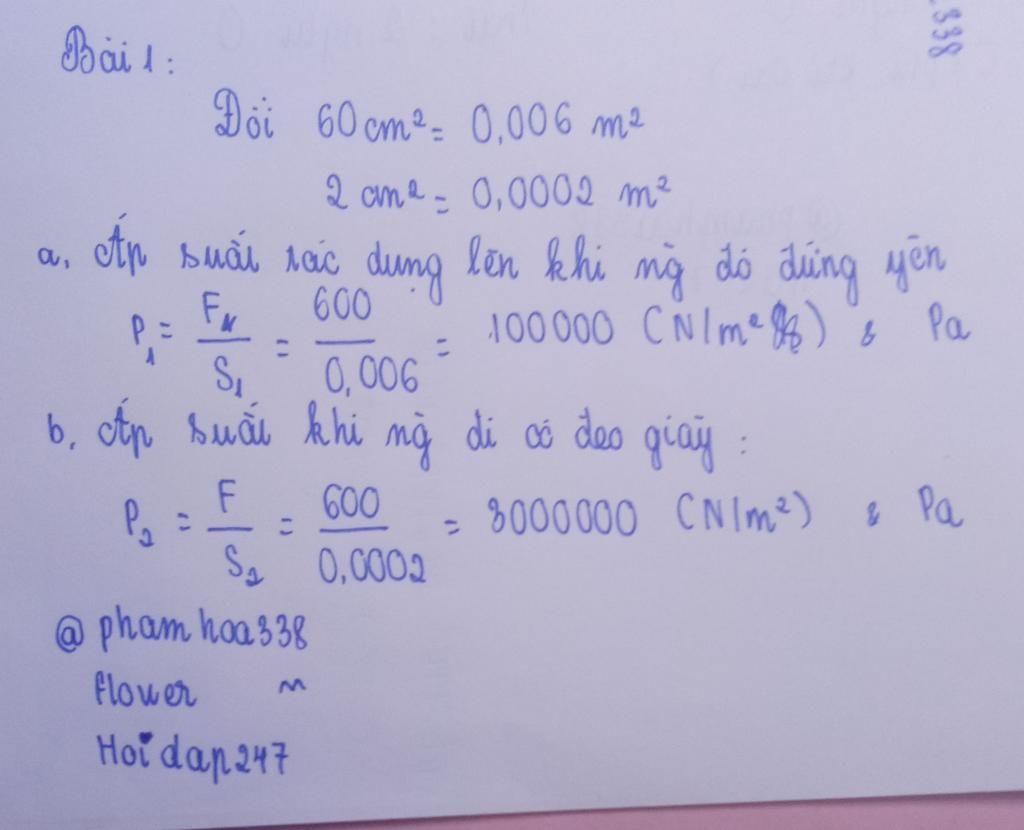 338
Bài 1:
Đổi 60 cm² = 0,006 m²
2 cm² = 0,0002 m²
a, Áp suất tác dụng lên khi ng đó đứng yên
P₁ = F / S₁ = 600 / 0,006 = 100000 (N/m²) & Pa
b, Áp suất khi ng đi có đeo giày :
P₂ = F / S₂ = 600 / 0,0002 = 3000000 (N/m²) & Pa
@ phamhoa338
flower ~
Hoidap247